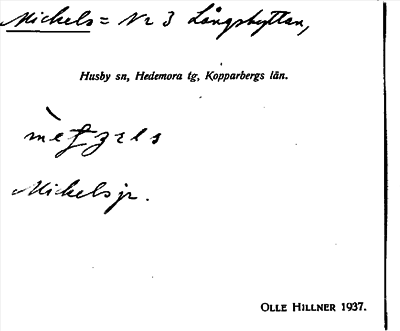 Mickels = Nr 3 Långshyttan,
Husby sn, Hedemora tg, Kopparbergs län.
Mickelsjr.
OLLE HILLNER 1937.